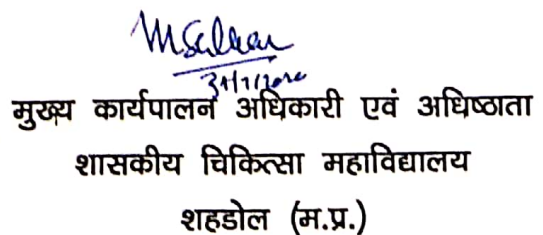 मुख्य कार्यपालन अधिकारी एवं अधिष्ठाता
शासकीय चिकित्सा महाविद्यालय
शहडोल (म.प्र.)